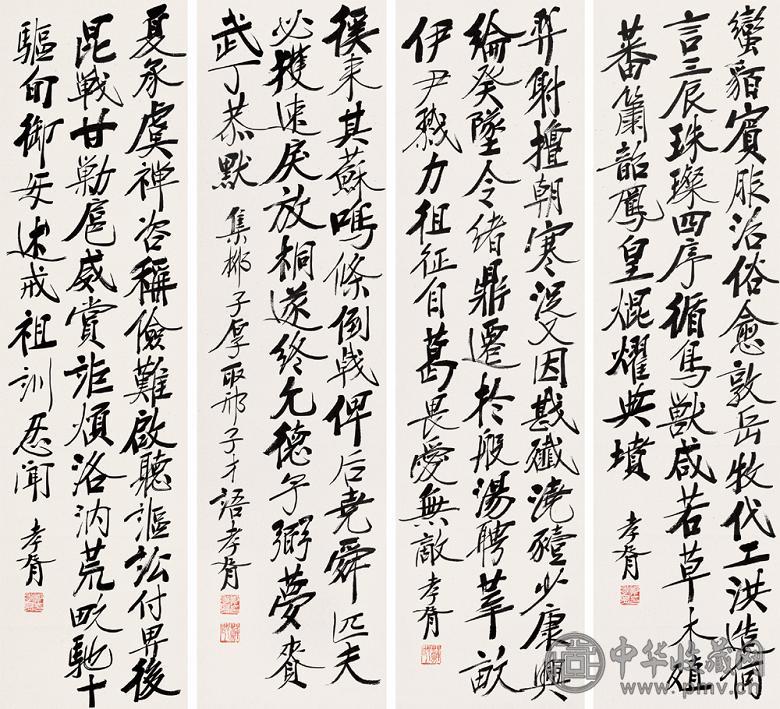 蠻貊賓服治俗愈敦岳牧代工洪造何
言三辰珠璨四序循鳥獸咸若草木殖
蕃簫韶鳳皇焜耀典墳
孝胥
羿射擅朝寒浞又因戡殲澆豷少康興
綸癸墜令緒鼎遷於殷湯聘莘畝
伊尹戮力徂征自葛畏愛無敵
孝胥
徯來其蘇鳴條倒戟俾后堯舜匹夫
必獲速戾放桐遂終允德予弼夢賚
武丁恭默
集柳子厚取邢子才語孝胥
夏承虞禪咨稱儉難啟聽謳訟付畀後
昆戰甘勦扈威賞詎煩洛汭荒畋馳十
驅旬御母述戒祖訓忍聞
孝胥
中华收藏网
www.pmv.cn